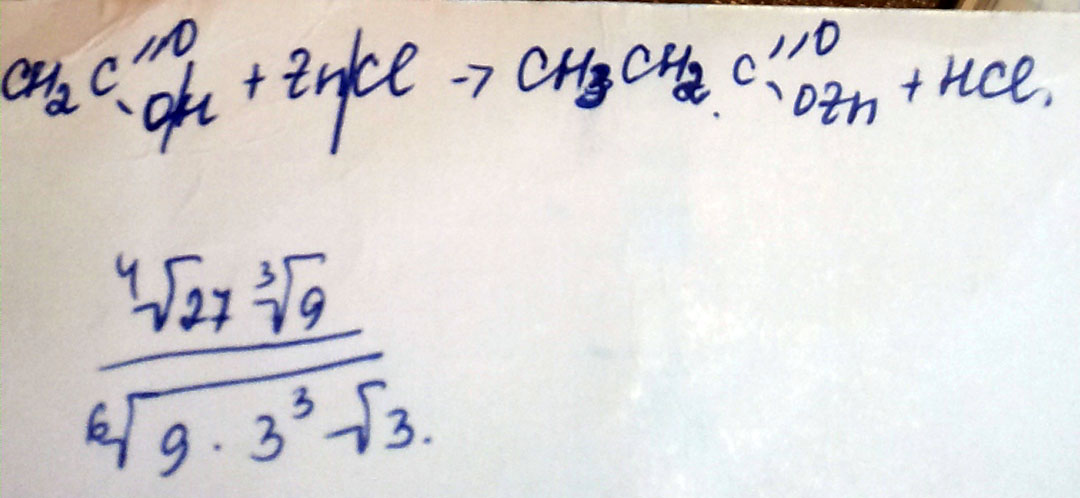 CH₂C(=O)OH + Zn|Cl → CH₃CH₂C(=O)OZn + HCl.
⁴√27 ³√9
⁶√9 · 3³ √3.